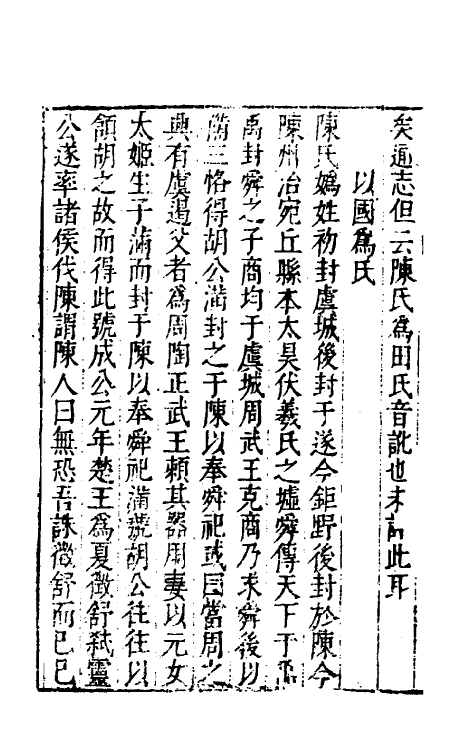 矣通志但云陳氏為田氏音訛也未討此耳
以國為氏
陳氏媯姓初封虞城後封于遂今鉅野後封於陳今
陳州治宛丘縣本太昊伏羲氏之墟舜傳天下于禹
禹封舜之子商均于虞城周武王克商乃求舜後以
備三恪得胡公滿封之于陳以奉舜祀或曰當周之
興有虞遏父者為周陶正武王賴其器用妻以元女
太姬生子滿而封于陳以奉舜祀滿號胡公往往以
頷胡之故而得此號成公元年楚王為夏徵舒弒靈
公遂率諸侯伐陳謂陳人曰無恐吾誅徵舒而已已